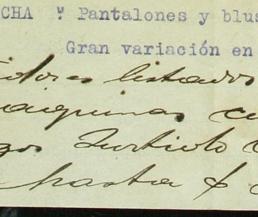 CHA " Pantalones y blus
Gran variación en
idores listados
aquinas cu
gos Surtido
hasta $